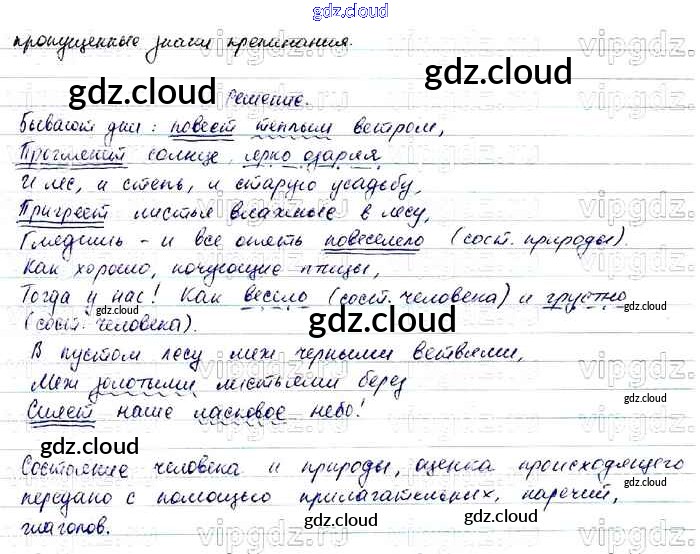 gdz.cloud
пропущенные знаки препинания.
Решение.
Бывают дни: повеет теплым ветром,
Проглянет солнце, ярко озаряя
И лес, и степь, и старую усадьбу,
Пригреет листья влажные в лесу,
Глядишь - и все опять повеселело (сост. природы).
Как хорошо, кочующие птицы,
Тогда у нас! Как весело (сост. человека) и грустно
(сост. человека).
В пустом лесу меж черными ветвями,
Меж золотыми листьями берез
Синеет наше ласковое небо!
Состояние человека и природы, оценка происходящего
передано с помощью прилагательных, наречий,
глаголов.
vipgdz.ru
gdz.cloud
gdz.cloud
gdz.cloud
gdz.cloud
gdz.cloud
gdz.cloud
gdz.cloud
gdz.cloud
gdz.cloud